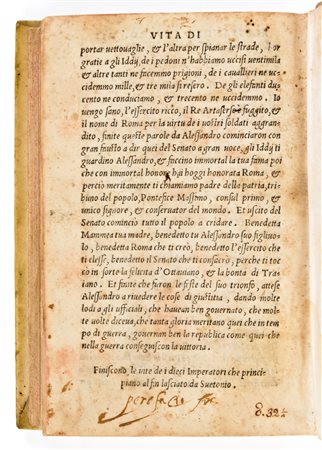 VITA DI
portar vettouaglie, & l'altra per spianar le strade, Hor
gratie a gli Iddij, de i pedoni n'habbiamo uccisi uentimila
& altre tanti ne facemmo prigioni, de i cauallieri ne uc-
cidemmo mille, & tre mila si resero. De gli elefanti du-
cento ne conduciamo, & trecento ne uccidemmo. Io
uengo sano, l'essercito ricco, il Re Artasserse fuggito, &
il nome di Roma per la uirtu de i uostri soldati aggran-
dito, finite queste parole da Alessandro cominciaron con
gran fiusso a dir quei del Senato a gran uoce, gli Iddij ti
guardino Alessandro, & faccino immortal la tua fama poi
che con immortal honor hai hoggi honorata Roma, &
perciò meritamente ti chiamiamo padre della patria, tri-
buno del popolo, Pontefice Massimo, consul primo, &
unico signore, & conseruator del mondo. Et uscito del
Senato cominciò tutto il popolo a cridare. Benedetta
Mammea tua madre, benedetto tu Alessandro suo figliuo-
lo, benedetta Roma che ti creò, benedetto l'essercito che
ti elesse, benedetto il Senato che ti consacrò, perche ti toc
cò in sorte la felicità d'Ottauiano, & la bontà di Tra-
iano. Et finite che furon le feste del suo trionfo, attese
Alessandro a riuedere le cose di giustitia, dando molte
lodi a gli ufficiali, che hauean ben gouernato, che mol-
te uolte diceua, che tanta gloria meritano quei che in tem-
po di guerra, gouernan ben la republica come quei che
nella guerra conseguiscon la uittoria.
Finiscono le uite de i dieci Imperatori che princi-
piano al fin lasciato da Suetonio.